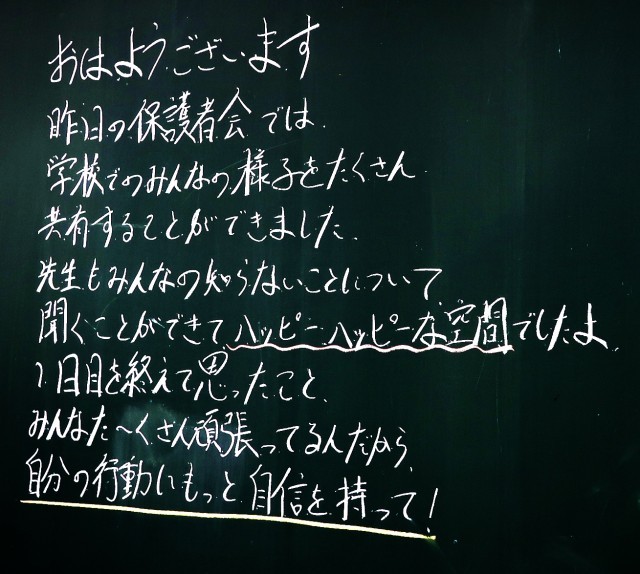 おはようございます
昨日の保護者会では、
学校でのみんなの様子をたくさん
共有することができました。
先生もみんなの知らないことについて
聞くことができてハッピーハッピーな空間でしたよ。
1日目を終えて思ったこと、
みんなた〜くさん頑張ってるんだから、
自分の行動にもっと自信を持って!